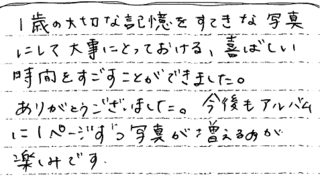 1歳の大切な記憶をすてきな写真
にして大事にとっておける、喜ばしい
時間をすごすことができました。
ありがとうございました。今後もアルバム
に1ページずつ写真が増えるのが
楽しみです.